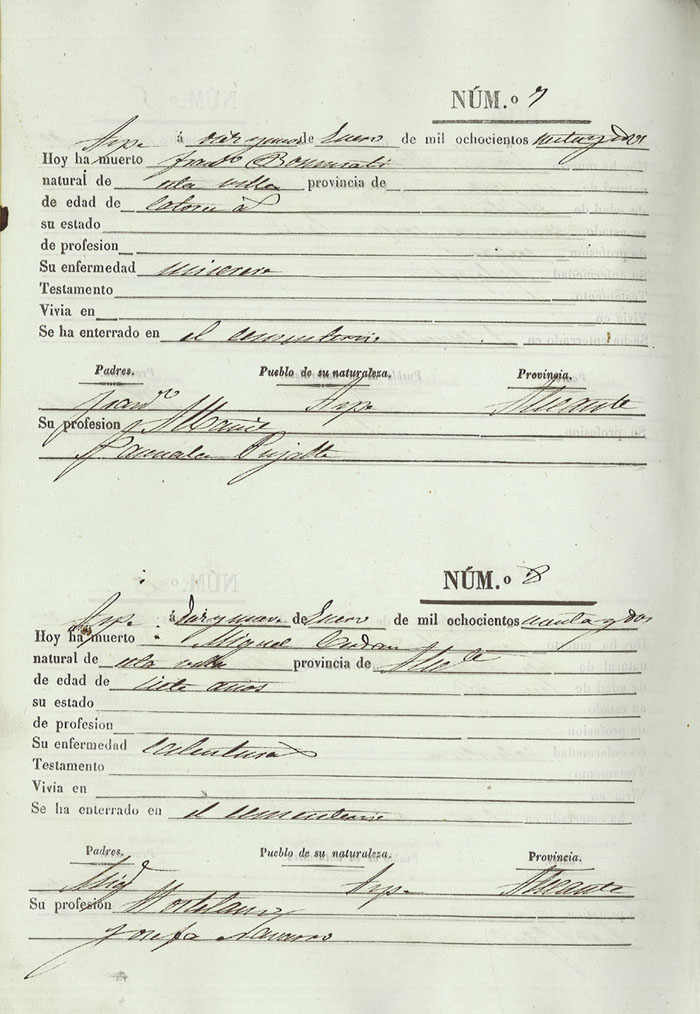 NÚM.º 7
Aspe á de Enero de mil ochocientos
Hoy ha muerto Franco
natural de esta villa provincia de
de edad de
su estado
de profesion
Su enfermedad miserere
Testamento
Vivia en
Se ha enterrado en el cementerio
Padres. Pueblo de su naturaleza. Provincia.
Franco Aspe Alicante
Su profesion
Pascuala Pujalte
NÚM.º 8
Aspe á de Enero de mil ochocientos
Hoy ha muerto Miguel
natural de esta villa provincia de
de edad de siete años
su estado
de profesion
Su enfermedad calenturas
Testamento
Vivia en
Se ha enterrado en el cementerio
Padres. Pueblo de su naturaleza. Provincia.
Migl Aspe Alicante
Su profesion
Josefa Navarro